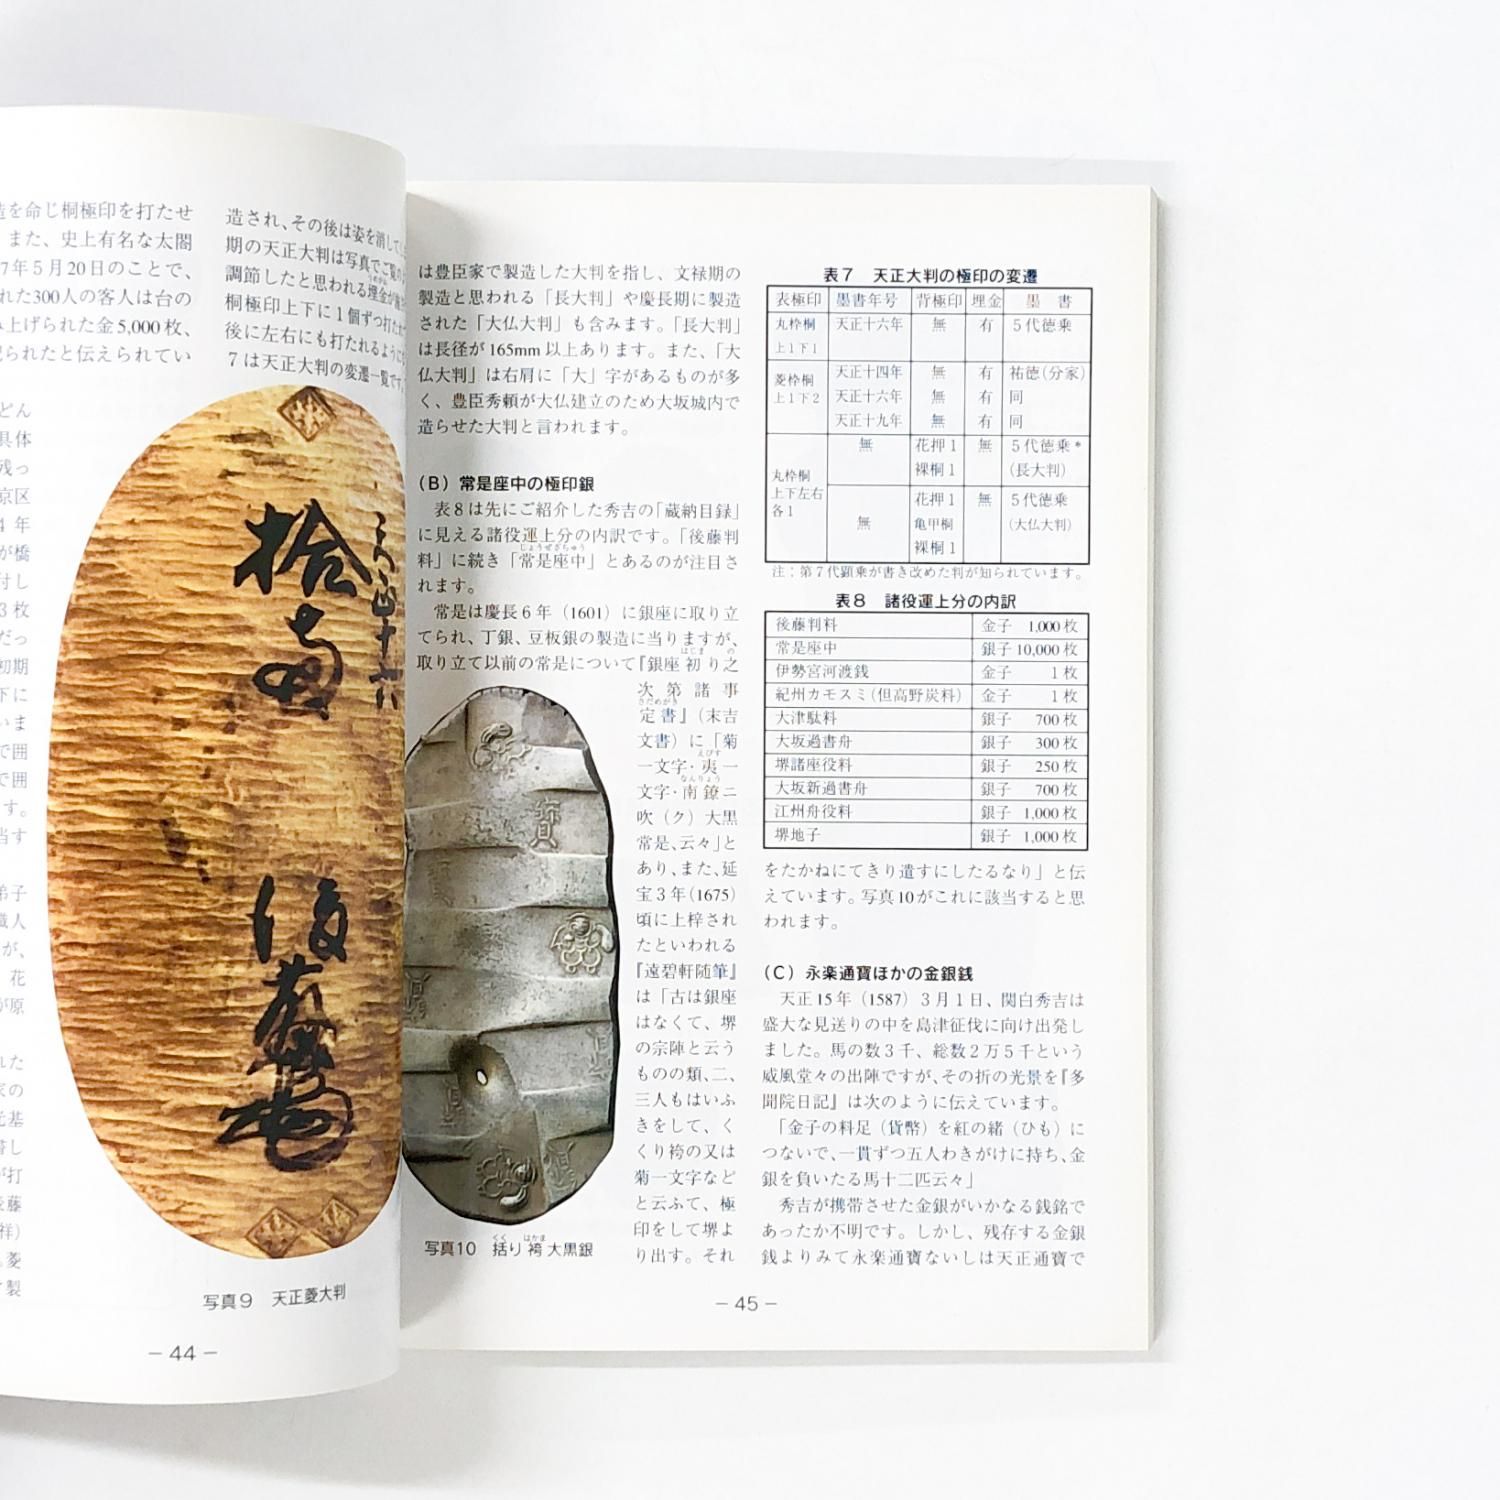 造を命じ桐極印を打たせ
また、史上有名な太閤
7年5月20日のことで、
れた300人の客人は台の
み上げられた金5,000枚、
配られたと伝えられてい
どん
具体
残っ
京区
4年
が橋
付し
3枚
だっ
初期
下に
いま
で囲
で囲
す。
当す
弟子
職人
が、
花
が原
れた
家の
元基
書し
が打
後藤
祥)
菱
製
造され、その後は姿を消して
期の天正大判は写真でご覧の
調節したと思われる埋金が
うめがね
桐極印上下に1個ずつ打た
後に左右にも打たれるように
7は天正大判の変遷一覧です
天正十六
拾両
後藤
写真9 天正菱大判
– 44 –
は豊臣家で製造した大判を指し、文禄期の
製造と思われる「長大判」や慶長期に製造
された「大仏大判」も含みます。「長大判」
は長径が165mm以上あります。また、「大
仏大判」は右肩に「大」字があるものが多
く、豊臣秀頼が大仏建立のため大坂城内で
造らせた大判と言われます。
(B) 常是座中の極印銀
表8は先にご紹介した秀吉の「蔵納目録」
に見える諸役運上分の内訳です。「後藤判
じょうぜざちゅう
料」に続き「常是座中」とあるのが注目さ
れます。
常是は慶長6年(1601)に銀座に取り立
てられ、丁銀、豆板銀の製造に当りますが、
はじま の
取り立て以前の常是について『銀座初り之
次第諸事
さだめがき
定書』(末吉
文書)に「菊
えびす
一文字・夷一
なんりょう
文字・南鐐ニ
吹(ク)大黒
常是、云々」と
あり、また、延
宝3年(1675)
頃に上梓され
たといわれる
『遠碧軒随筆』
は「古は銀座
はなくて、堺
の宗陣と云う
ものの類、二、
三人もはいふ
きをして、く
くり袴の又は
菊一文字など
と云ふて、極
印をして堺よ
り出す。それ
寶
くく はかま
写真10 括り袴大黒銀
表7 天正大判の極印の変遷
表極印 墨書年号 背極印 埋金 墨書
丸枠桐 上1下1 天正十六年 無 有 5代徳乗
菱枠桐 上1下2 天正十四年 無 有 祐徳(分家)
天正十六年 無 有 同
天正十九年 無 有 同
丸枠桐 上下左右 各1 無 花押1 裸桐1 無 5代徳乗* (長大判)
無 花押1 亀甲桐 裸桐1 無 5代徳乗 (大仏大判)
注:第7代顕乗が書き改めた判が知られています。
表8 諸役運上分の内訳
後藤判料 金子 1,000枚
常是座中 銀子 10,000枚
伊勢宮河渡銭 金子 1枚
紀州カモスミ(但高野炭料) 金子 1枚
大津駄料 銀子 700枚
大坂過書舟 銀子 300枚
堺諸座役料 銀子 250枚
大坂新過書舟 銀子 700枚
江州舟役料 銀子 1,000枚
堺地子 銀子 1,000枚
をたかねにてきり遣すにしたるなり」と伝
えています。写真10がこれに該当すると思
われます。
(C) 永楽通寶ほかの金銀銭
天正15年(1587)3月1日、関白秀吉は
盛大な見送りの中を島津征伐に向け出発し
ました。馬の数3千、総数2万5千という
威風堂々の出陣ですが、その折の光景を『多
聞院日記』は次のように伝えています。
「金子の料足(貨幣)を紅の緒(ひも)に
つないで、一貫ずつ五人わきがけに持ち、金
銀を負いたる馬十二匹云々」
秀吉が携帯させた金銀がいかなる銭銘で
あったか不明です。しかし、残存する金銀
銭よりみて永楽通寶ないしは天正通寶で
– 45 –